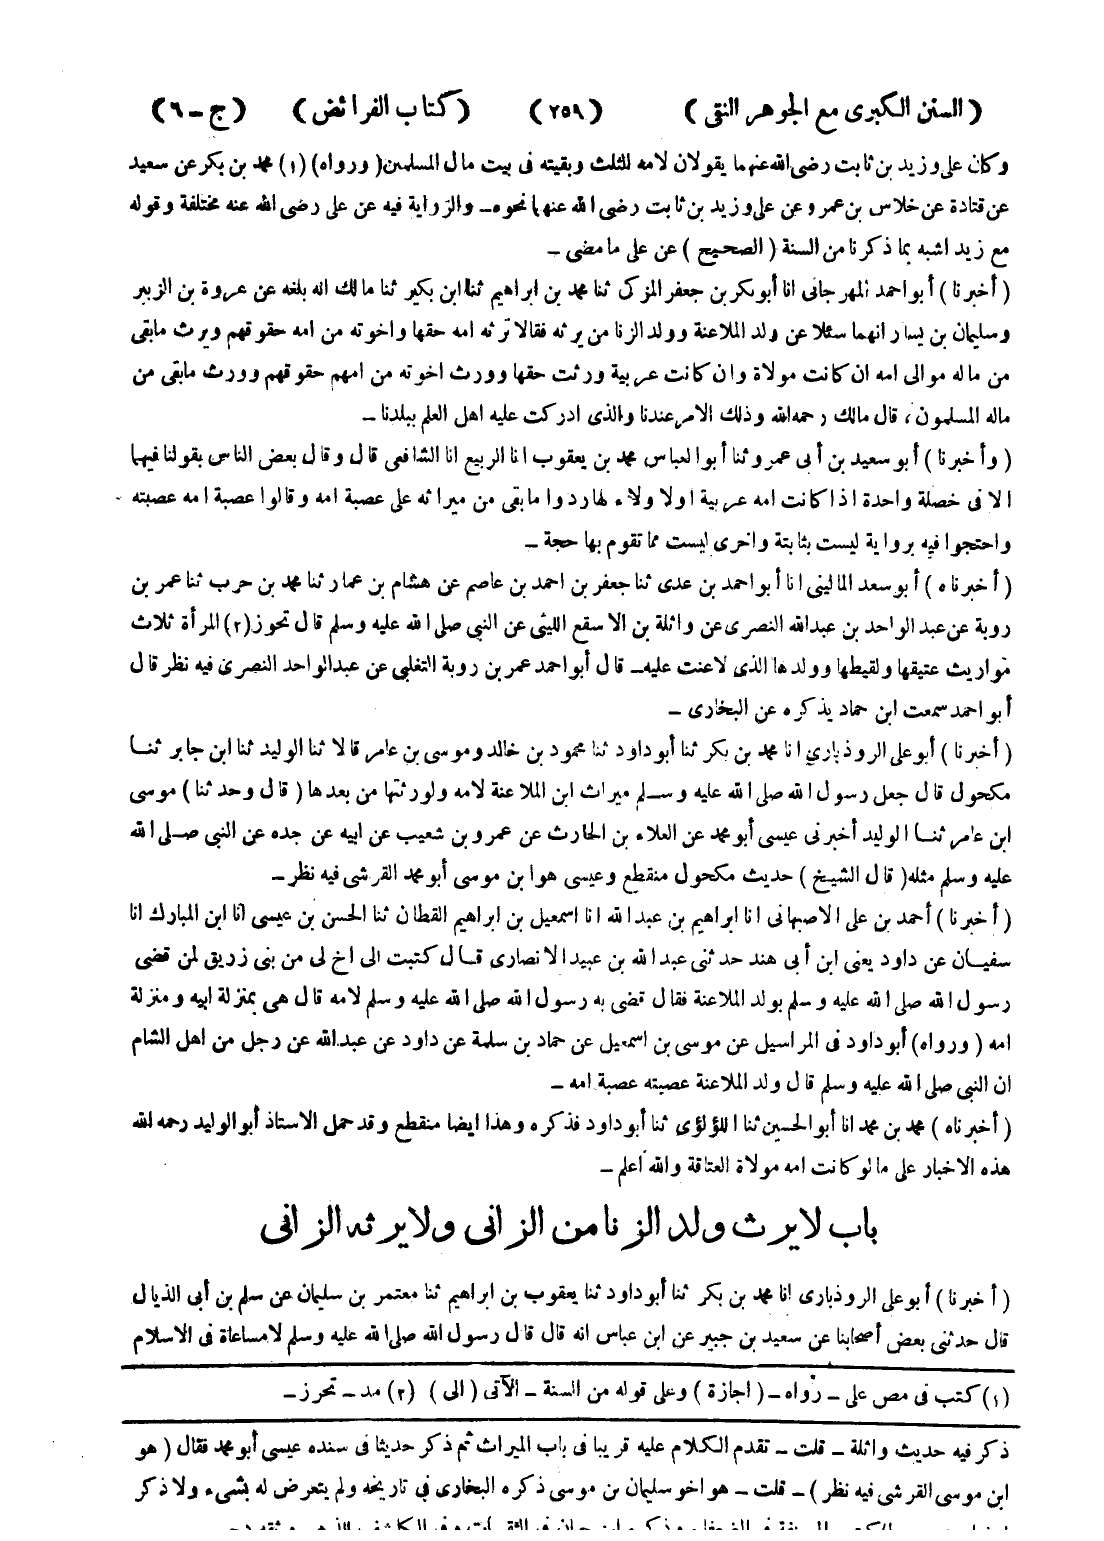 (السنن الكبرى مع الجوهر النقى) (٢٥٩) (كتاب الفرائض) (ج - ٦)
وكان على وزيد بن ثابت رضى الله عنهما يقولان لامه للثلث وبقيته فى بيت مال المسلمين (ورواه) (١) محمد بن بكر عن سعيد
عن قتادة عن خلاس بن عمرو عن على وزيد بن ثابت رضى الله عنهما نحوه - والرواية فيه عن على رضى الله عنه مختلفة وقوله
مع زيد اشبه بما ذكرنا من السنة (الصحيح) عن على ما مضى -
(أخبرنا) أبو احمد المهرجانى انا أبو بكر بن جعفر المزكى ثنا محمد بن ابراهيم ثنا ابن بكير ثنا مالك انه بلغه عن عروة بن الزبير
وسليمان بن يسار انهما سئلا عن ولد الملاعنة وولد الزنا من يرثه فقالا ترثه امه حقها واخوته من امه حقوقهم ويرث مابقى
من ماله موالى امه ان كانت مولاة وان كانت عربية ورثت حقها وورث اخوته من امهم حقوقهم وورث مابقى من
ماله المسلمون، قال مالك رحمه الله وذلك الامر عندنا والذى ادركت عليه اهل العلم ببلدنا -
(وأخبرنا) أبو سعيد بن أبى عمرو ثنا أبو العباس محمد بن يعقوب انا الربيع انا الشافعى قال وقال بعض الناس بقولنا فيهما
الا فى خصلة واحدة اذا كانت امه عربية اولا ولاء لها ردوا مابقى من ميراثه على عصبة امه وقالوا عصبة امه عصبته
واحتجوا فيه برواية ليست بثابتة واخرى ليست مما تقوم بها حجة -
(أخبرناه) أبو سعد المالينى انا أبو احمد بن عدى ثنا جعفر بن احمد بن عاصم عن هشام بن عمار ثنا محمد بن حرب ثنا عمر بن
روبة عن عبد الواحد بن عبدالله النصرى عن واثلة بن الاسقع الليثى عن النبى صلى الله عليه وسلم قال تحوز (٢) المرأة ثلاث
مواريث عتيقها ولقيطها وولدها الذى لاعنت عليه - قال أبو احمد عمر بن روبة التغلبى عن عبدالواحد النصرى فيه نظر قال
أبو احمد سمعت ابن حماد يذكره عن البخارى -
(أخبرنا) أبو على الروذبارى انا محمد بن بكر ثنا أبو داود ثنا محمود بن خالد وموسى بن عامر قالا ثنا الوليد ثنا ابن جابر ثنا
مكحول قال جعل رسول الله صلى الله عليه وسلم ميراث ابن الملاعنة لامه ولورثتها من بعدها (قال وحدثنا) موسى
ابن عامر ثنا الوليد أخبرنى عيسى أبو محمد عن العلاء بن الحارث عن عمرو بن شعيب عن ابيه عن جده عن النبى صلى الله
عليه وسلم مثله (قال الشيخ) حديث مكحول منقطع وعيسى هو ابن موسى أبو محمد القرشى فيه نظر -
(أخبرنا) أحمد بن على الاصبهانى انا ابراهيم بن عبد الله انا اسمعيل بن ابراهيم القطان ثنا الحسن بن عيسى انا ابن المبارك انا
سفيان عن داود يعنى ابن أبى هند حدثنى عبد الله بن عبيد الانصارى قال كتبت الى اخ لى من بنى زريق لمن قضى
رسول الله صلى الله عليه وسلم بولد الملاعنة فقال قضى به رسول الله صلى الله عليه وسلم لامه قال هى بمنزلة ابيه ومنزلة
امه (ورواه) أبو داود فى المراسيل عن موسى بن اسمعيل عن حماد بن سلمة عن داود عن عبد الله عن رجل من اهل الشام
ان النبى صلى الله عليه وسلم قال ولد الملاعنة عصبته عصبة امه -
(أخبرناه) محمد بن محمد انا أبو الحسين ثنا اللؤلؤى ثنا أبو داود فذكره وهذا ايضا منقطع وقد حمل الاستاذ أبو الوليد رحمه الله
هذه الاخبار على ما لو كانت امه مولاة العتاقة والله أعلم -
باب لايرث ولد الزنا من الزانى ولايرثه الزانى
(أخبرنا) أبو على الروذبارى انا محمد بن بكر ثنا أبو داود ثنا يعقوب بن ابراهيم ثنا معتمر بن سليمان عن سلم بن أبى الذيال
قال حدثنى بعض أصحابنا عن سعيد بن جبير عن ابن عباس انه قال قال رسول الله صلى الله عليه وسلم لامساعاة فى الاسلام
(١) كتب فى مص على - رواه - (اجازة) وعلى قوله من السنة - الآتى (الى) (٢) مد - تحرز -
ذكر فيه حديث واثلة - قلت - تقدم الكلام عليه قريبا فى باب الميراث ثم ذكر حديثا فى سنده عيسى أبو محمد فقال (هو
ابن موسى القرشى فيه نظر) - قلت - هو اخو سليمان بن موسى ذكره البخارى فى تاريخه ولم يتعرض له بشىء ولا ذكر